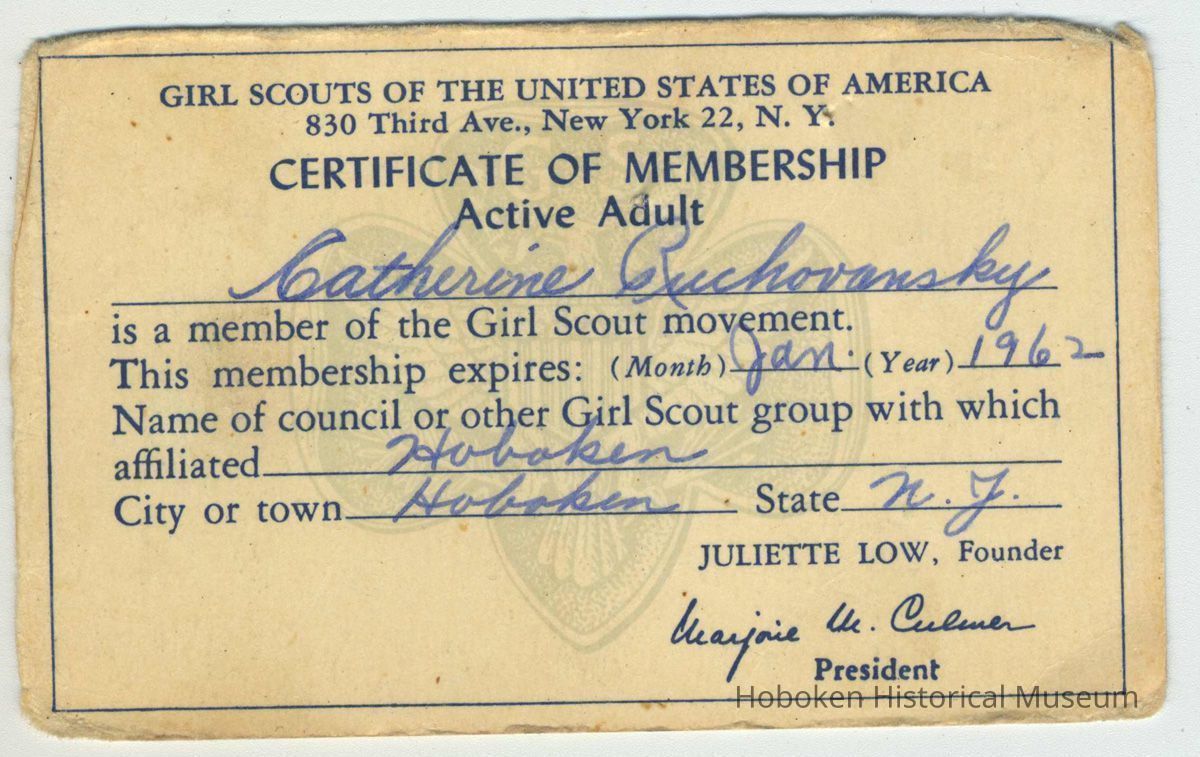 GIRL SCOUTS OF THE UNITED STATES OF AMERICA
830 Third Ave., New York 22, N. Y.
CERTIFICATE OF MEMBERSHIP
Active Adult
Catherine Ruchovansky
is a member of the Girl Scout movement.
This membership expires: (Month) Jan. (Year) 1962
Name of council or other Girl Scout group with which
affiliated Hoboken
City or town Hoboken State N. J.
JULIETTE LOW, Founder
Marjorie M. Culmer
President
Hoboken Historical Museum